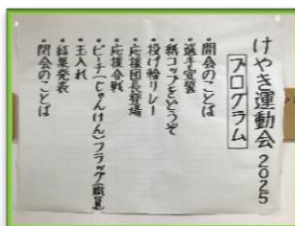 けやき運動会 2025
プログラム
・開会のことば
・選手宣誓
・紙コップをどうぞ
・投げ輪リレー
・応援団長登場
・応援合戦
・ビーチ(じゃんけん)フラッグ(職員)
・玉入れ
・結果発表
・閉会のことば